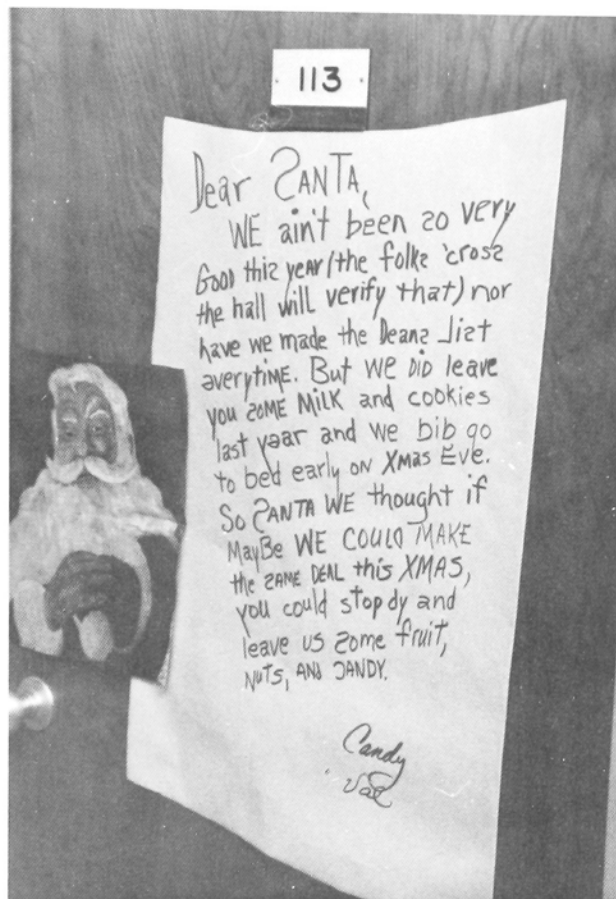 113
Dear SANTA,
WE ain't been so very
Good this year (the folks 'cross
the hall will verify that) nor
have we made the Deans List
averytime. But WE DID leave
you SOME MILK and cookies
last yaar and we bib go
to bed early on Xmas Eve.
So SANTA WE thought if
MayBe WE COULD MAKE
the SAME DEAL this XMAS,
you could stop dy and
leave us some fruit,
NuTs, AND CANDY.
Candy
Val